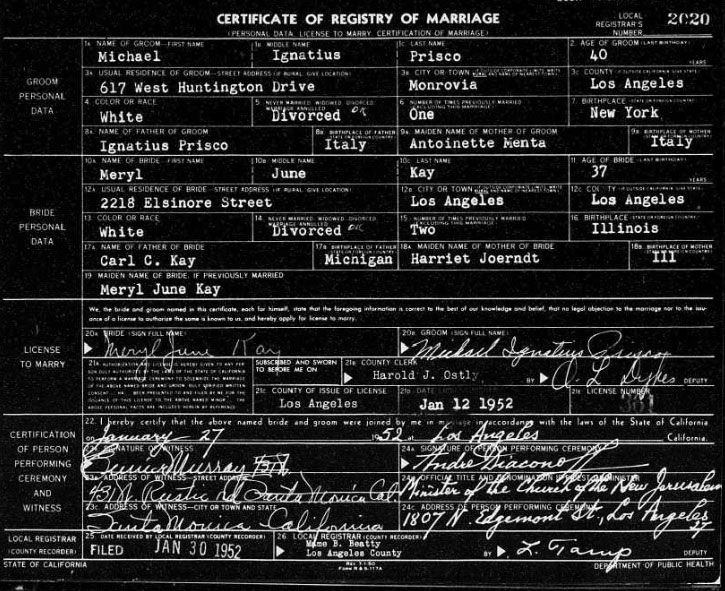 CERTIFICATE OF REGISTRY OF MARRIAGE
(PERSONAL DATA, LICENSE TO MARRY, CERTIFICATION OF MARRIAGE)
LOCAL REGISTRAR'S NUMBER 2020
GROOM PERSONAL DATA
1A NAME OF GROOM—FIRST NAME 1B MIDDLE NAME 1C LAST NAME 2. AGE OF GROOM (LAST BIRTHDAY)
Michael Ignatius Prisco 40 YEARS
3A USUAL RESIDENCE OF GROOM—STREET ADDRESS (IF RURAL, GIVE LOCATION) 3B CITY OR TOWN 3C COUNTY
617 West Huntington Drive Monrovia Los Angeles
4 COLOR OR RACE 5 NEVER MARRIED, WIDOWED, DIVORCED, MARRIAGE ANNULLED 6 NUMBER OF TIMES PREVIOUSLY MARRIED 7. BIRTHPLACE
White Divorced OK One New York
8A NAME OF FATHER OF GROOM 8B BIRTHPLACE OF FATHER 9A MAIDEN NAME OF MOTHER OF GROOM 9B BIRTHPLACE OF MOTHER
Ignatius Prisco Italy Antoinette Menta Italy
BRIDE PERSONAL DATA
10A NAME OF BRIDE—FIRST NAME 10B MIDDLE NAME 10C LAST NAME 11 AGE OF BRIDE (LAST BIRTHDAY)
Meryl June Kay 37 YEARS
12A USUAL RESIDENCE OF BRIDE—STREET ADDRESS (IF RURAL, GIVE LOCATION) 12B CITY OR TOWN 12C COUNTY
2218 Elsinore Street Los Angeles Los Angeles
13 COLOR OR RACE 14. NEVER MARRIED, WIDOWED, DIVORCED, MARRIAGE ANNULLED 15 NUMBER OF TIMES PREVIOUSLY MARRIED 16 BIRTHPLACE
White Divorced OK Two Illinois
17A NAME OF FATHER OF BRIDE 17B BIRTHPLACE OF FATHER 18A MAIDEN NAME OF MOTHER OF BRIDE 18B BIRTHPLACE OF MOTHER
Carl C. Kay Michigan Harriet Joerndt Ill
19 MAIDEN NAME OF BRIDE, IF PREVIOUSLY MARRIED
Meryl June Kay
LICENSE TO MARRY
We, the bride and groom named in this certificate, each for himself, state that the foregoing information is correct to the best of our knowledge and belief, that no legal objection to the marriage nor to the issu-
ance of a license to authorize the same is known to us, and hereby apply for license to marry.
20A BRIDE (SIGN FULL NAME) 20B GROOM (SIGN FULL NAME)
Meryl June Kay Michael Ignatius Prisco
SUBSCRIBED AND SWORN TO BEFORE ME ON 21B COUNTY CLERK
Harold J. Ostly BY DEPUTY
21C COUNTY OF ISSUE OF LICENSE 21D DATE 21E LICENSE NUMBER
Los Angeles Jan 12 1952
CERTIFICATION OF PERSON PERFORMING CEREMONY AND WITNESS
22. I hereby certify that the above named bride and groom were joined by me in marriage in accordance with the laws of the State of California
on January 27 1952 at Los Angeles California.
23A SIGNATURE OF WITNESS 24A SIGNATURE OF PERSON PERFORMING CEREMONY
Murray Andre Diaconoff
23B ADDRESS OF WITNESS—STREET ADDRESS 24B OFFICIAL TITLE AND DENOMINATION IF PRIEST OR MINISTER
431 N. Rustic Rd Santa Monica Cal Minister of the Church of the New Jerusalem
23C ADDRESS OF WITNESS—CITY OR TOWN AND STATE 24C ADDRESS OF PERSON PERFORMING CEREMONY
Santa Monica California 1807 N. Edgemont St., Los Angeles 27
LOCAL REGISTRAR (COUNTY RECORDER)
25 DATE RECEIVED BY LOCAL REGISTRAR (COUNTY RECORDER) 26 LOCAL REGISTRAR (COUNTY RECORDER)
FILED JAN 30 1952 Mame B. Beatty
Los Angeles County BY DEPUTY
STATE OF CALIFORNIA DEPARTMENT OF PUBLIC HEALTH